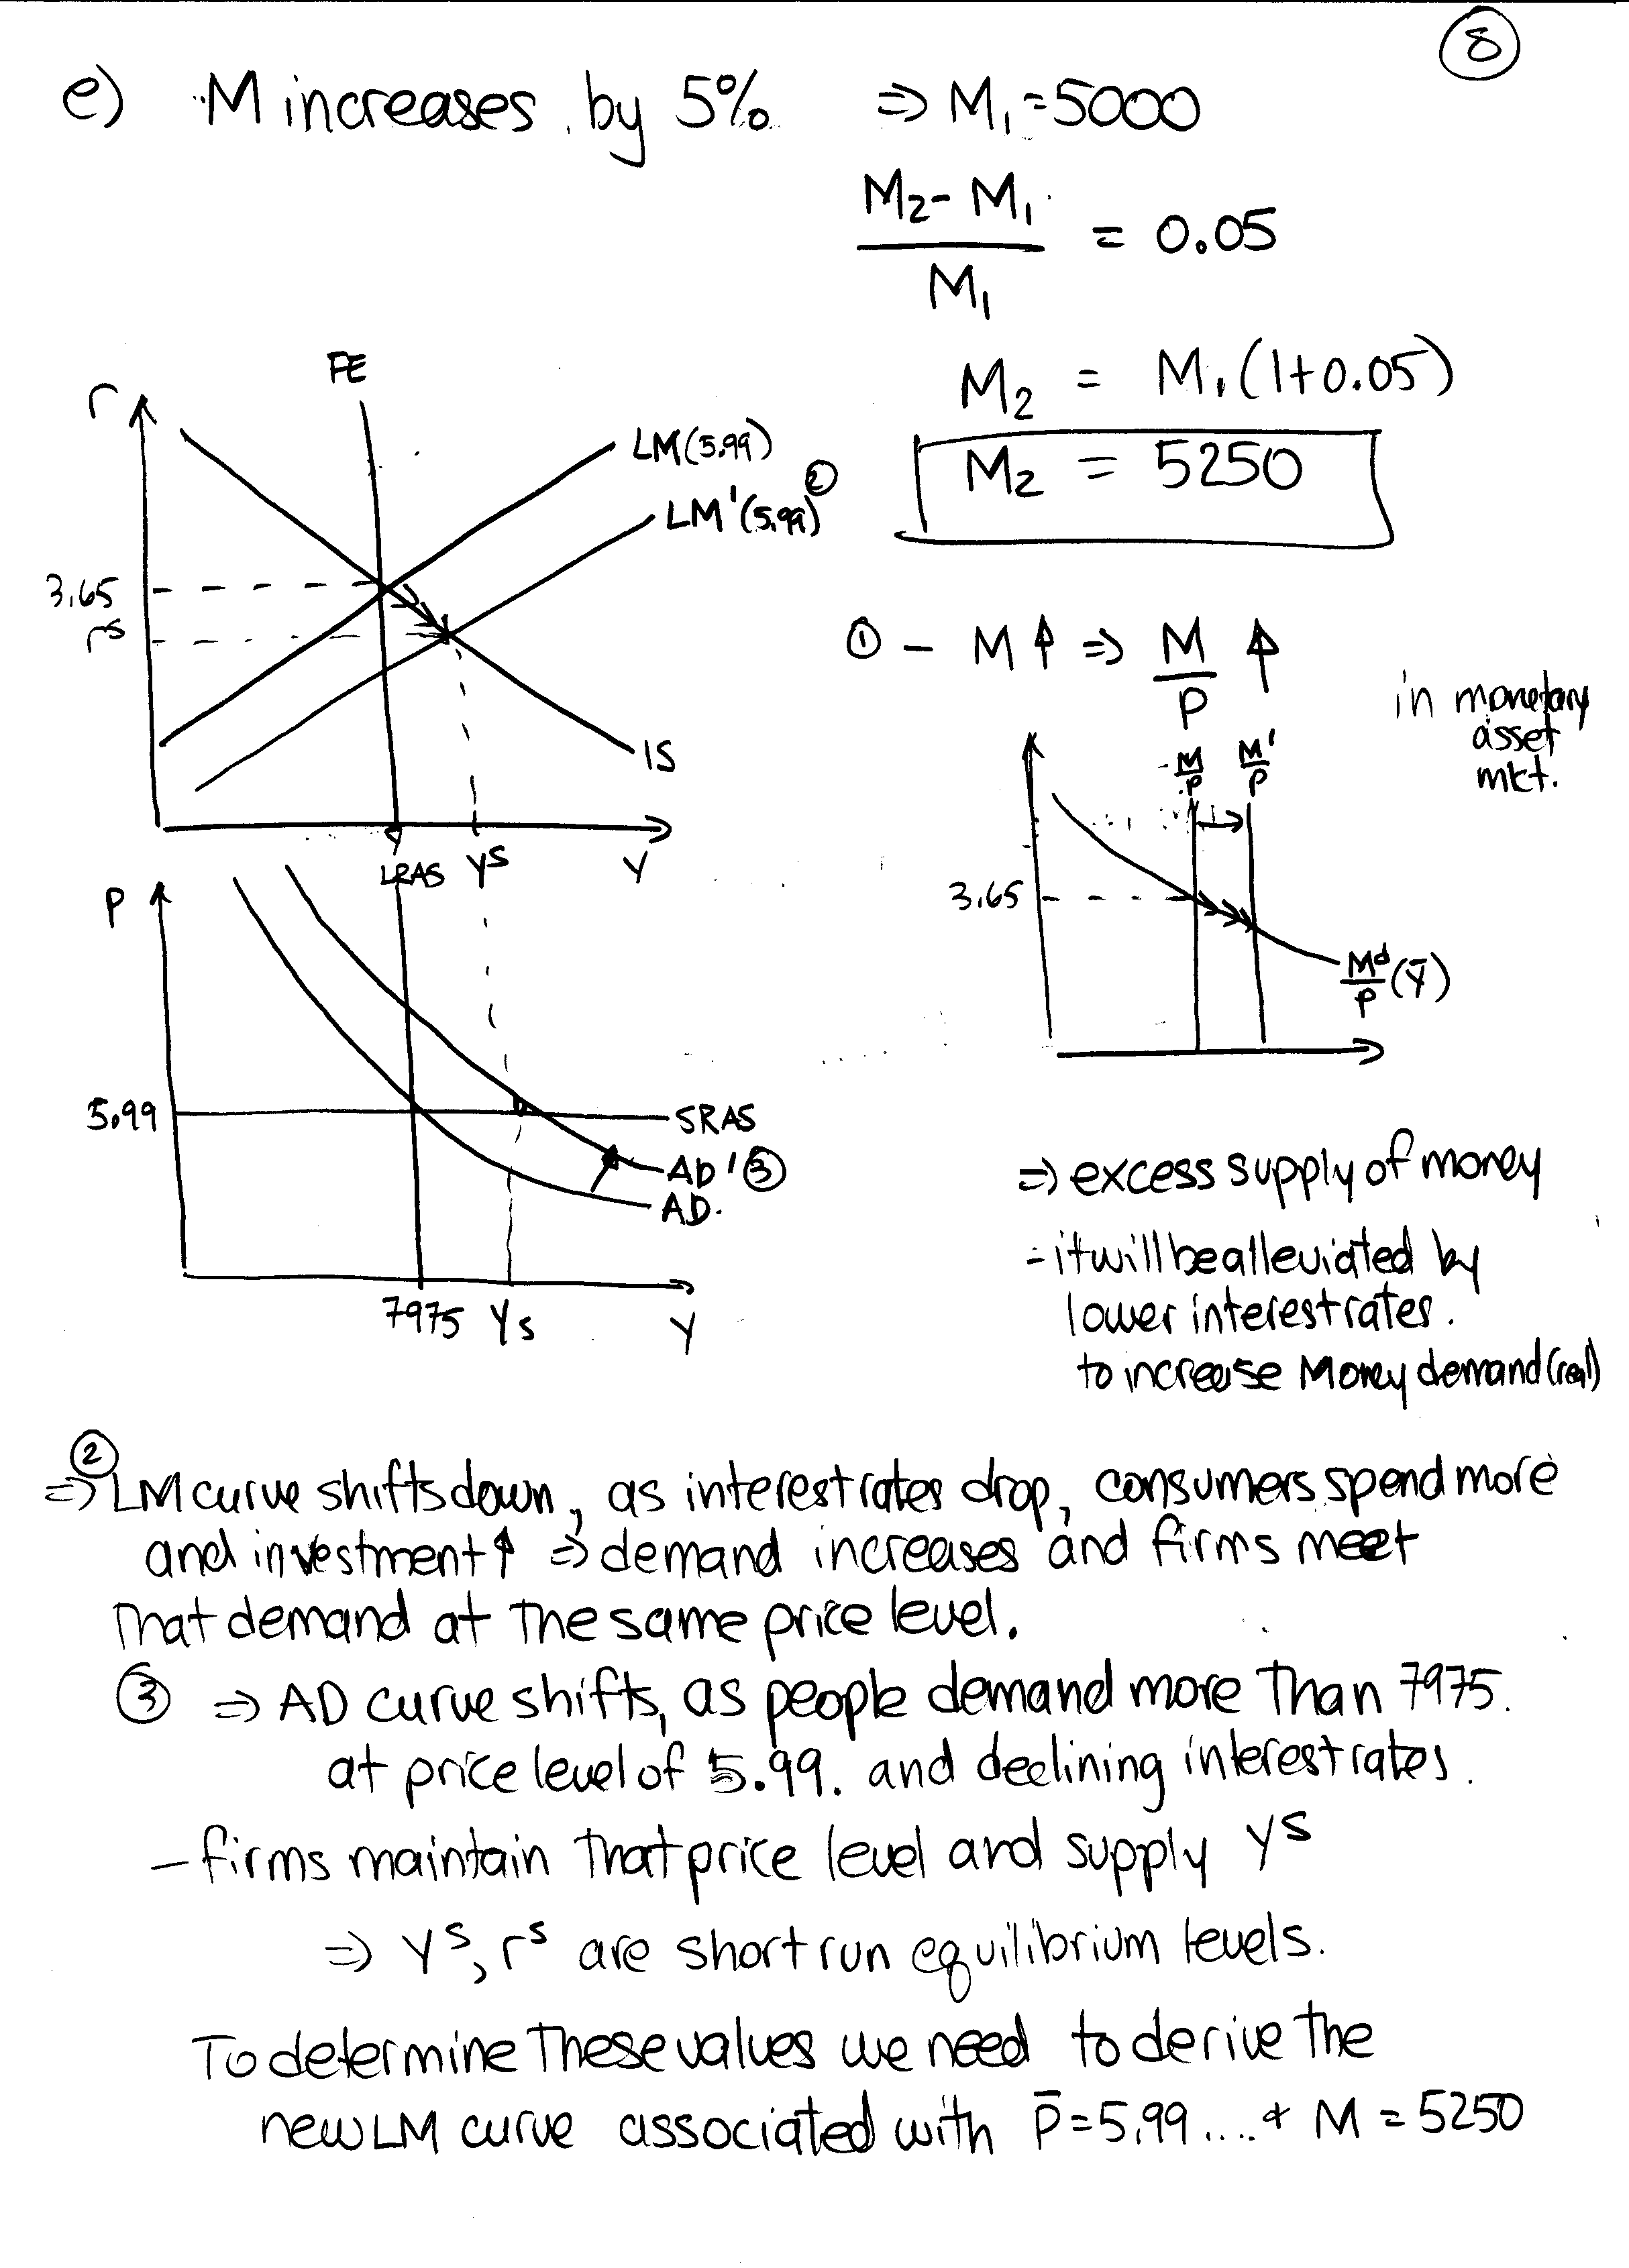 8
e) M increases by 5% ⇒ M₁ = 5000
M₂ - M₁ / M₁ = 0.05
M₂ = M₁(1+0.05)
M₂ = 5250
FE
r
LM(5.99)
LM'(5.99) ②
3.65
rˢ
IS
LRAS Yˢ Y
① - M↑ ⇒ M/P ↑
in monetary
asset
mkt.
M/P M'/P
3.65
Mᵈ/P (Ȳ)
P
5.99
SRAS
AD' ③
AD.
7975 Ys Y
⇒ excess supply of money
- it will be alleviated by
lower interest rates.
to increase Money demand (real)
②
⇒ LM curve shifts down, as interest rates drop, consumers spend more
and investment↑ ⇒ demand increases and firms meet
that demand at the same price level.
③ ⇒ AD curve shifts, as people demand more than 7975.
at price level of 5.99. and declining interest rates.
- firms maintain that price level and supply Yˢ
⇒ Yˢ, rˢ are short run equilibrium levels.
To determine these values we need to derive the
new LM curve associated with P̄ = 5.99.... + M = 5250